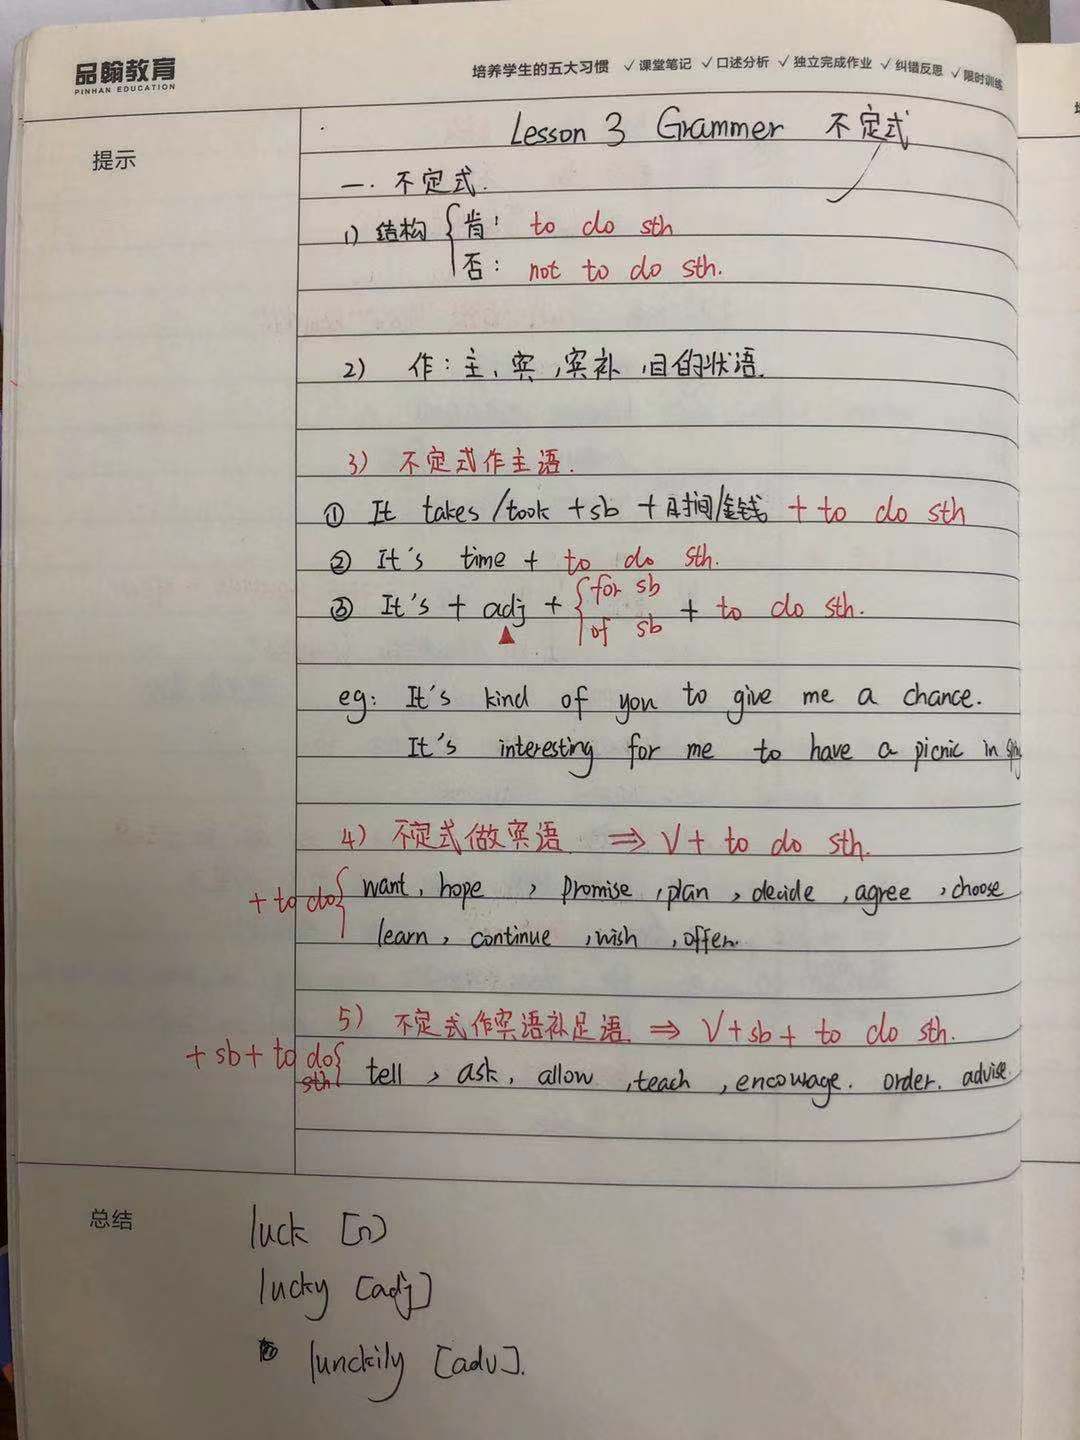 品翰教育
PINHAN EDUCATION
培养学生的五大习惯 √课堂笔记 √口述分析 √独立完成作业 √纠错反思 √限时训练
提示
Lesson 3 Grammer 不定式
一. 不定式.
1) 结构 { 肯: to do sth
否: not to do sth.
2) 作: 主、宾, 宾补, 目的状语.
3) 不定式作主语.
① It takes/took +sb +时间/金钱 + to do sth
② It's time + to do sth.
③ It's + adj + { for sb
of sb + to do sth.
eg: It's kind of you to give me a chance.
It's interesting for me to have a picnic in
4) 不定式做宾语 ⇒ V+ to do sth.
+ to do { want, hope , promise ,plan , decide ,agree ,choose
learn, continue ,wish ,offer.
5) 不定式作宾语补足语 ⇒ V+sb+ to do sth.
+ sb+ to do { tell , ask, allow ,teach ,encowage. order. advise.
sth
总结
luck [n]
lucky [adj]
lunckily [adv].